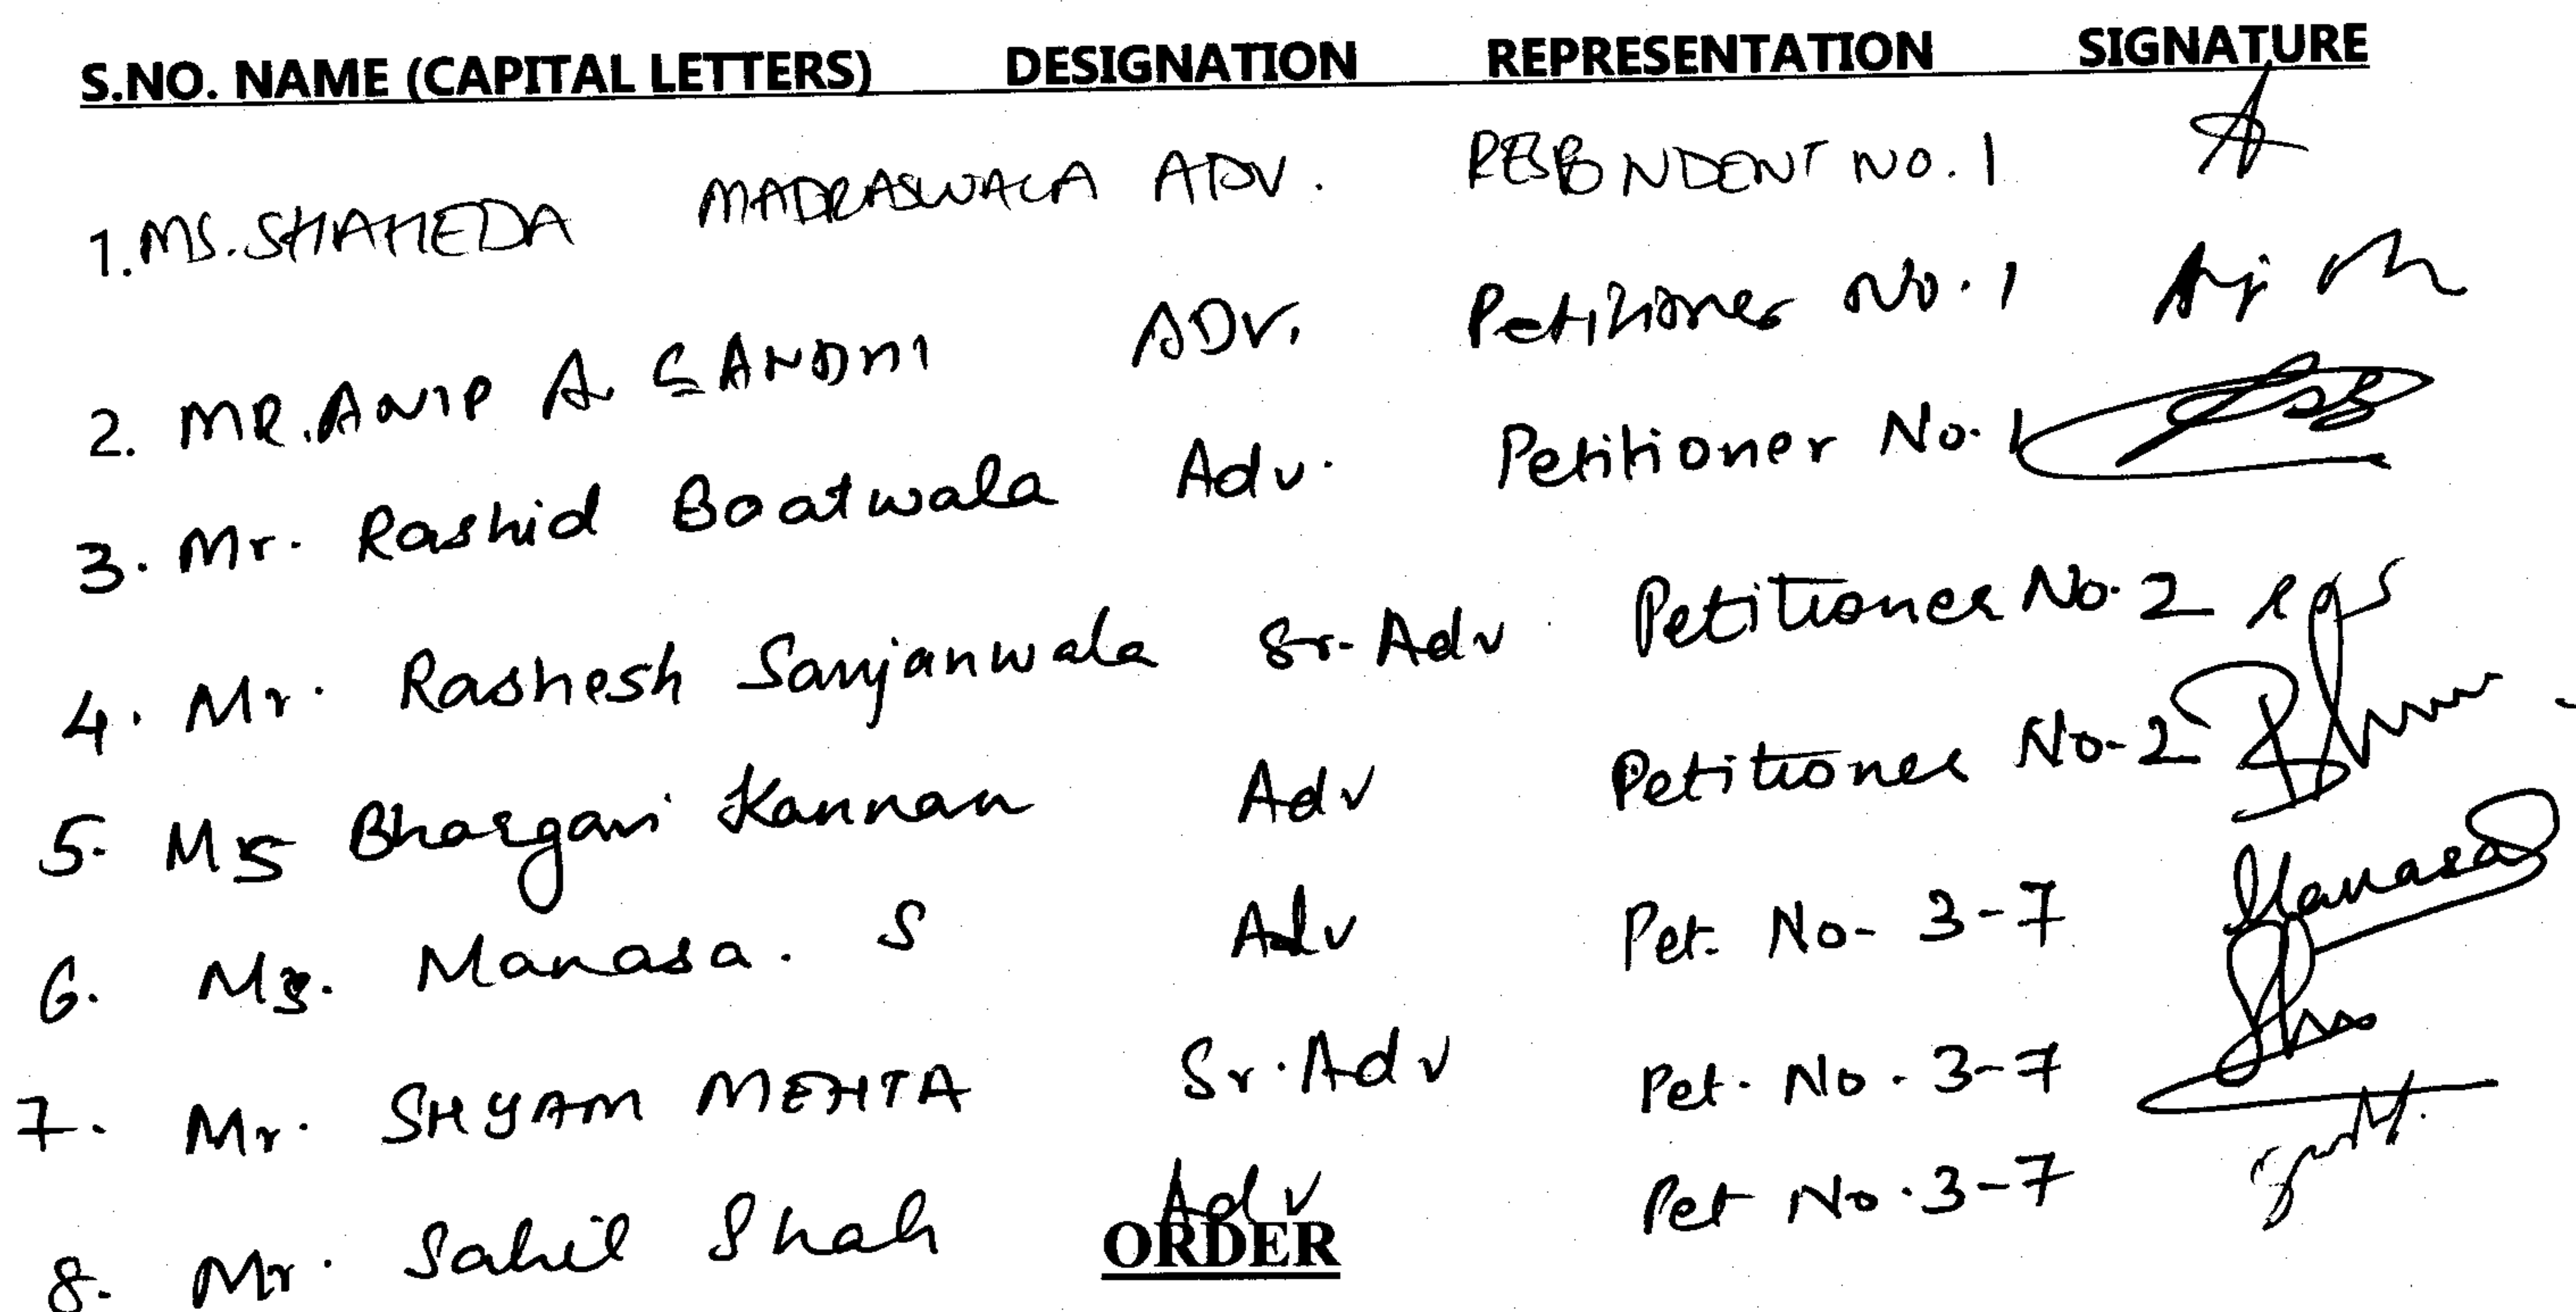 S.NO. NAME (CAPITAL LETTERS) DESIGNATION REPRESENTATION SIGNATURE
1. MS. SHAHEDA MADRASWALA ADV. RESPONDENT NO. 1
2. MR. ANIP A. GANDHI ADV. Petitioner No. 1
3. Mr. Rashid Boatwala Adv. Petitioner No. 1
4. Mr. Rashesh Sanjanwala Sr. Adv Petitioner No. 2
5. Ms Bhargavi Kannan Adv Petitioner No-2
6. Ms. Manasa. S Adv Pet. No- 3-7 Manasa
7. Mr. SHYAM MEHTA Sr. Adv Pet. No. 3-7
8. Mr. Sahil Shah Adv Pet No. 3-7
ORDER